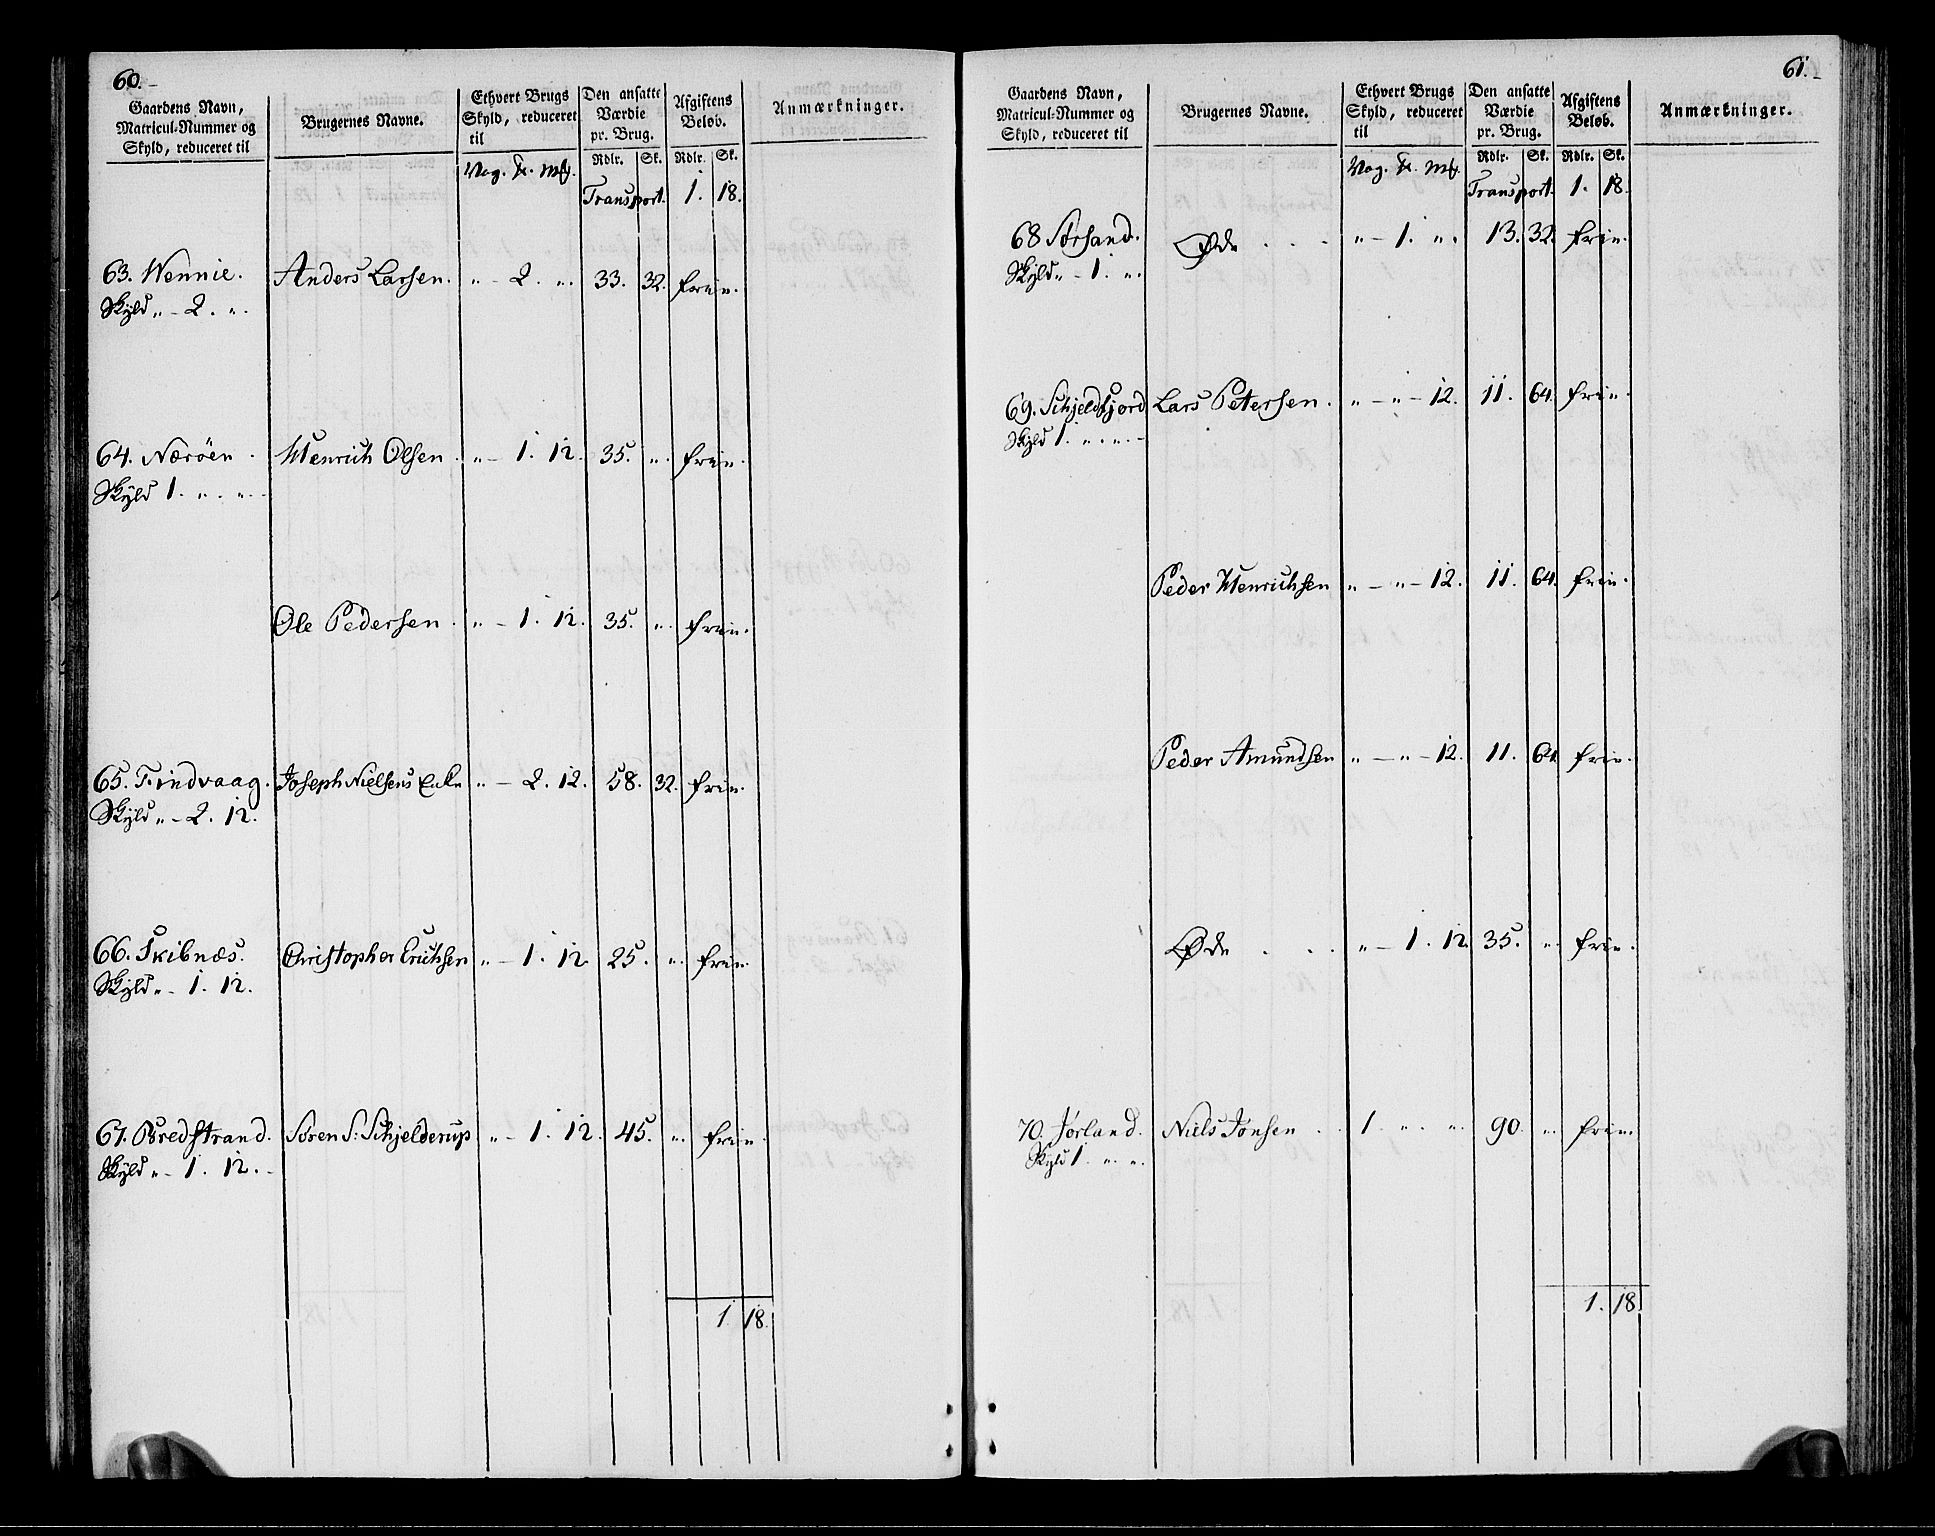 60.
Gaardens Navn, Matricul-Nummer og Skyld, reduceret til | Brugernes Navne. | Ethvert Brugs Skyld, reduceret til | Den ansatte Værdie pr. Brug. | Afgiftens Beløb. | Anmærkninger.
Vog. Rdlr. Sk. Rdlr. Sk.
Transport. 1. 18.
63. Wennie. Anders Larsen. „ – 2. „. 33. 32. frie.
Skyld „ – 2. „.
64. Nærøen. Henrich Olsen. „ – 1. 12. 35. „. frie.
Skyld 1. „. „.
Ole Pedersen. „ – 1. 12. 35. „. frie.
65. Findvaag. Joseph Nielsens Enke „ – 2. 12. 58. 32. frie.
Skyld „ – 2. 12.
66. Skibnæs. Christopher Erichsen „ – 1. 12. 25. „. frie.
Skyld „ – 1. 12.
67. Bredstrand. Søren S: Schjelderup „ – 1. 12. 45. „. frie.
Skyld „ – 1. 12.
1. 18.
61.
Gaardens Navn, Matricul-Nummer og Skyld, reduceret til | Brugernes Navne. | Ethvert Brugs Skyld, reduceret til | Den ansatte Værdie pr. Brug. | Afgiftens Beløb. | Anmærkninger.
Vog. Rdlr. Sk. Rdlr. Sk.
Transport. 1. 18.
68 Sørsand. Øde . . . „ – 1. „. 13. 32. frie.
Skyld „ – 1. „.
69. Schjeldfjord Lars Petersen. „ – „ – 12. 11. 64. frie.
Skyld 1. „. „.
Peder Henrichsen „ – „ – 12. 11. 64. frie.
Peder Amundsen „ – „ – 12. 11. 64. frie.
Øde . . . „ – 1. 12. 35. „. frie.
70. Jørland. Niels Jonsen . . 1. „. „. 90. „. frie.
Skyld 1. „. „.
1. 18.